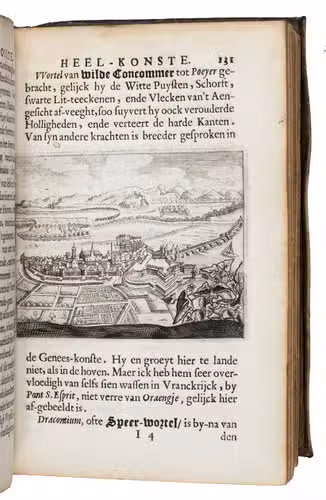 HEEL-KONSTE. 131
Wortel van wilde Concommer tot Poeyer ge-
bracht, gelijck hy de Witte Puysten, Schorft,
swarte Lit-teeckenen, ende Vlecken van't Aen-
gesicht af-veeght, soo suyvert hy oock verouderde
Holligheden, ende verteert de harde Kanten.
Van syn andere krachten is breeder gesproken in
de Genees-konste. Hy en groeyt hier te lande
niet, als in de hoven. Maer ick heb hem seer over-
vloedigh van selfs sien wassen in Vranckrijck, by
Pont S. Esprit, niet verre van Oraengje, gelijck hier
af-gebeeldt is.
Dracontium, ofte Speer-wortel/ is by-na van
I 4 den